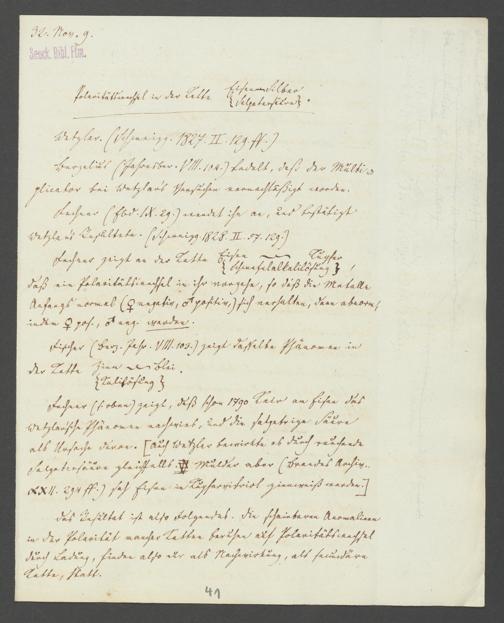 32. Nov. 9.
Senck. Bibl. Ffm.
Polaritätswechsel in der Kette Eisen Silber
{Salpetersäure}.
Wetzler. (Schweigg. 1827. II. 129. ff.)
Berzelius (Jahresber. VIII. 104.) tadelt, daß der Multi-
plicator bei Wetzlers Versuchen vernachläßigt worden.
Fechner (Ebd. IX. 29.) wendet ihn an, und bestätigt
Wetzlers Resultate. (Schweigg. 1828. II. 129.)
Fechner zeigt an der Kette Eisen Kupfer
{Schwefelalkalilösung},
daß ein Polaritätswechsel in ihr vorgehe, so daß die Metalle
Anfangs normal (♀ negativ, ♂ positiv,) sich verhalten, dann abnorm,
indem ♀ pos., ♂ neg. werden.
Fischer (Berz. Jahr. VIII. 103.) zeigt dasselbe Phänomen in
der Kette Zinn Blei.
{Kalilösung}
Fechner (s. oben) zeigt, daß schon 1790 Keir an Eisen das
Wetzlersche Phänomen nachwies, und die salpetrige Säure
als Ursache davon. [Auch Wetzler bewirkte es durch rauchende
Salpetersäure gleichfalls. Mulder aber (Brandes Archiv.
XXII. 294 ff.) sah Eisen in Kupfervitriol werden.]
Das Resultat ist also folgendes. Die scheinbaren Anomalieen
in der Polarität mancher Ketten beruhen auf Polaritätswechsel
durch Ladung, finden also nur als Nachwirkung, als secundäre
Kette, statt.
41